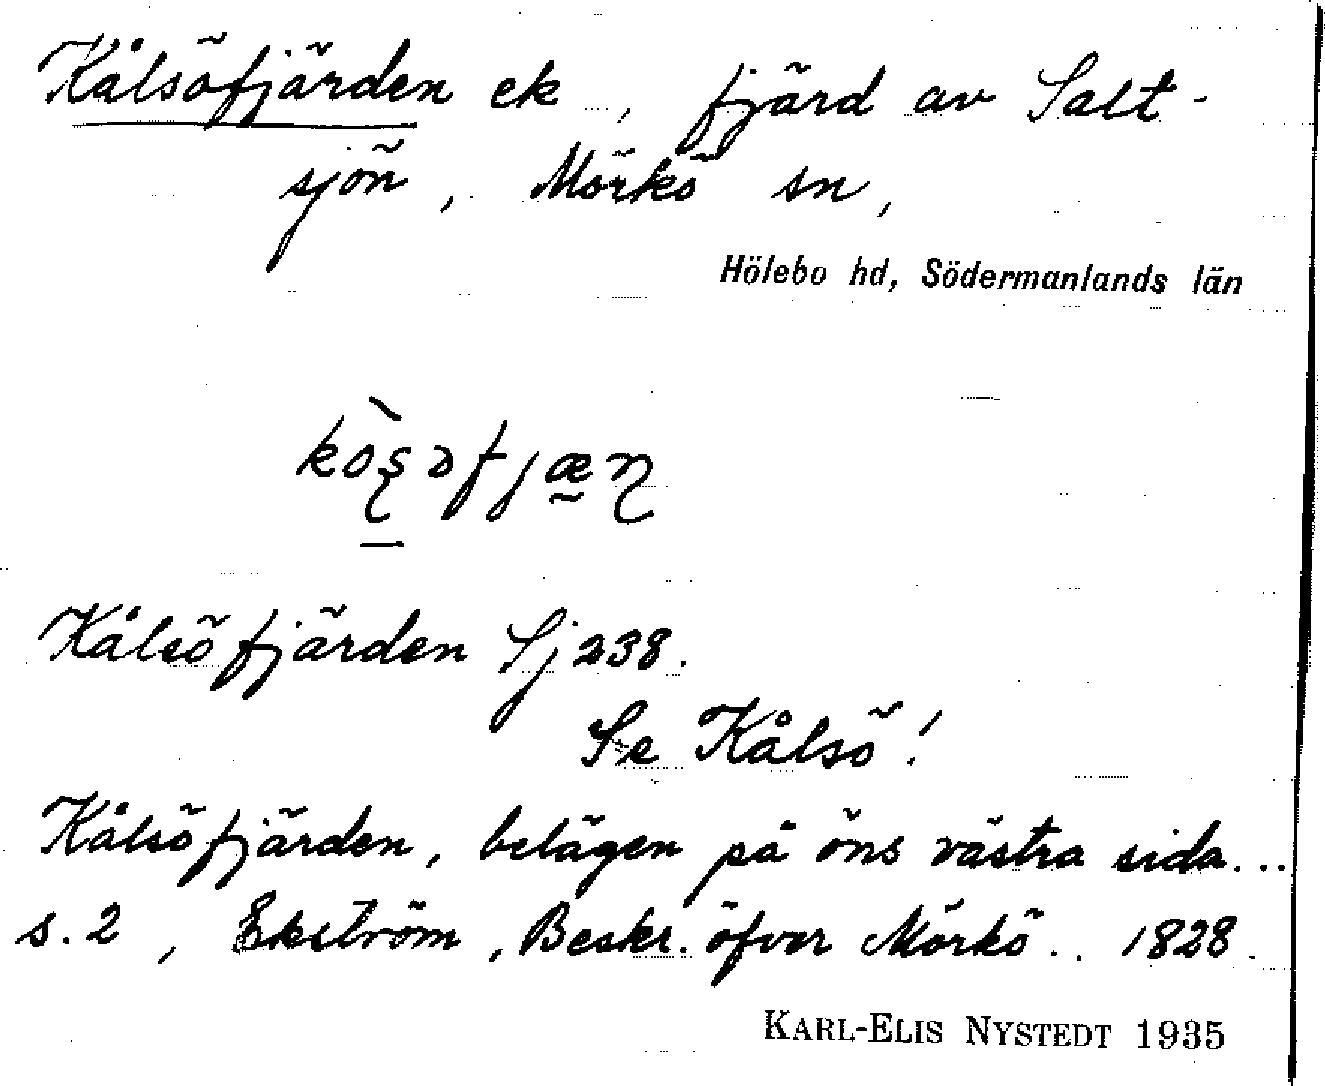 Kålsöfjärden ek , fjärd av Salt-
sjön , Mörkö sn ,
Hölebo hd, Södermanlands län
Kålsöfjärden Sj 238.
Se Kålsö!
Kålsöfjärden, belägen på öns västra sida...
s. 2 , Ekström , Beskr. öfver Mörkö .. 1828 .
KARL-ELIS NYSTEDT 1935